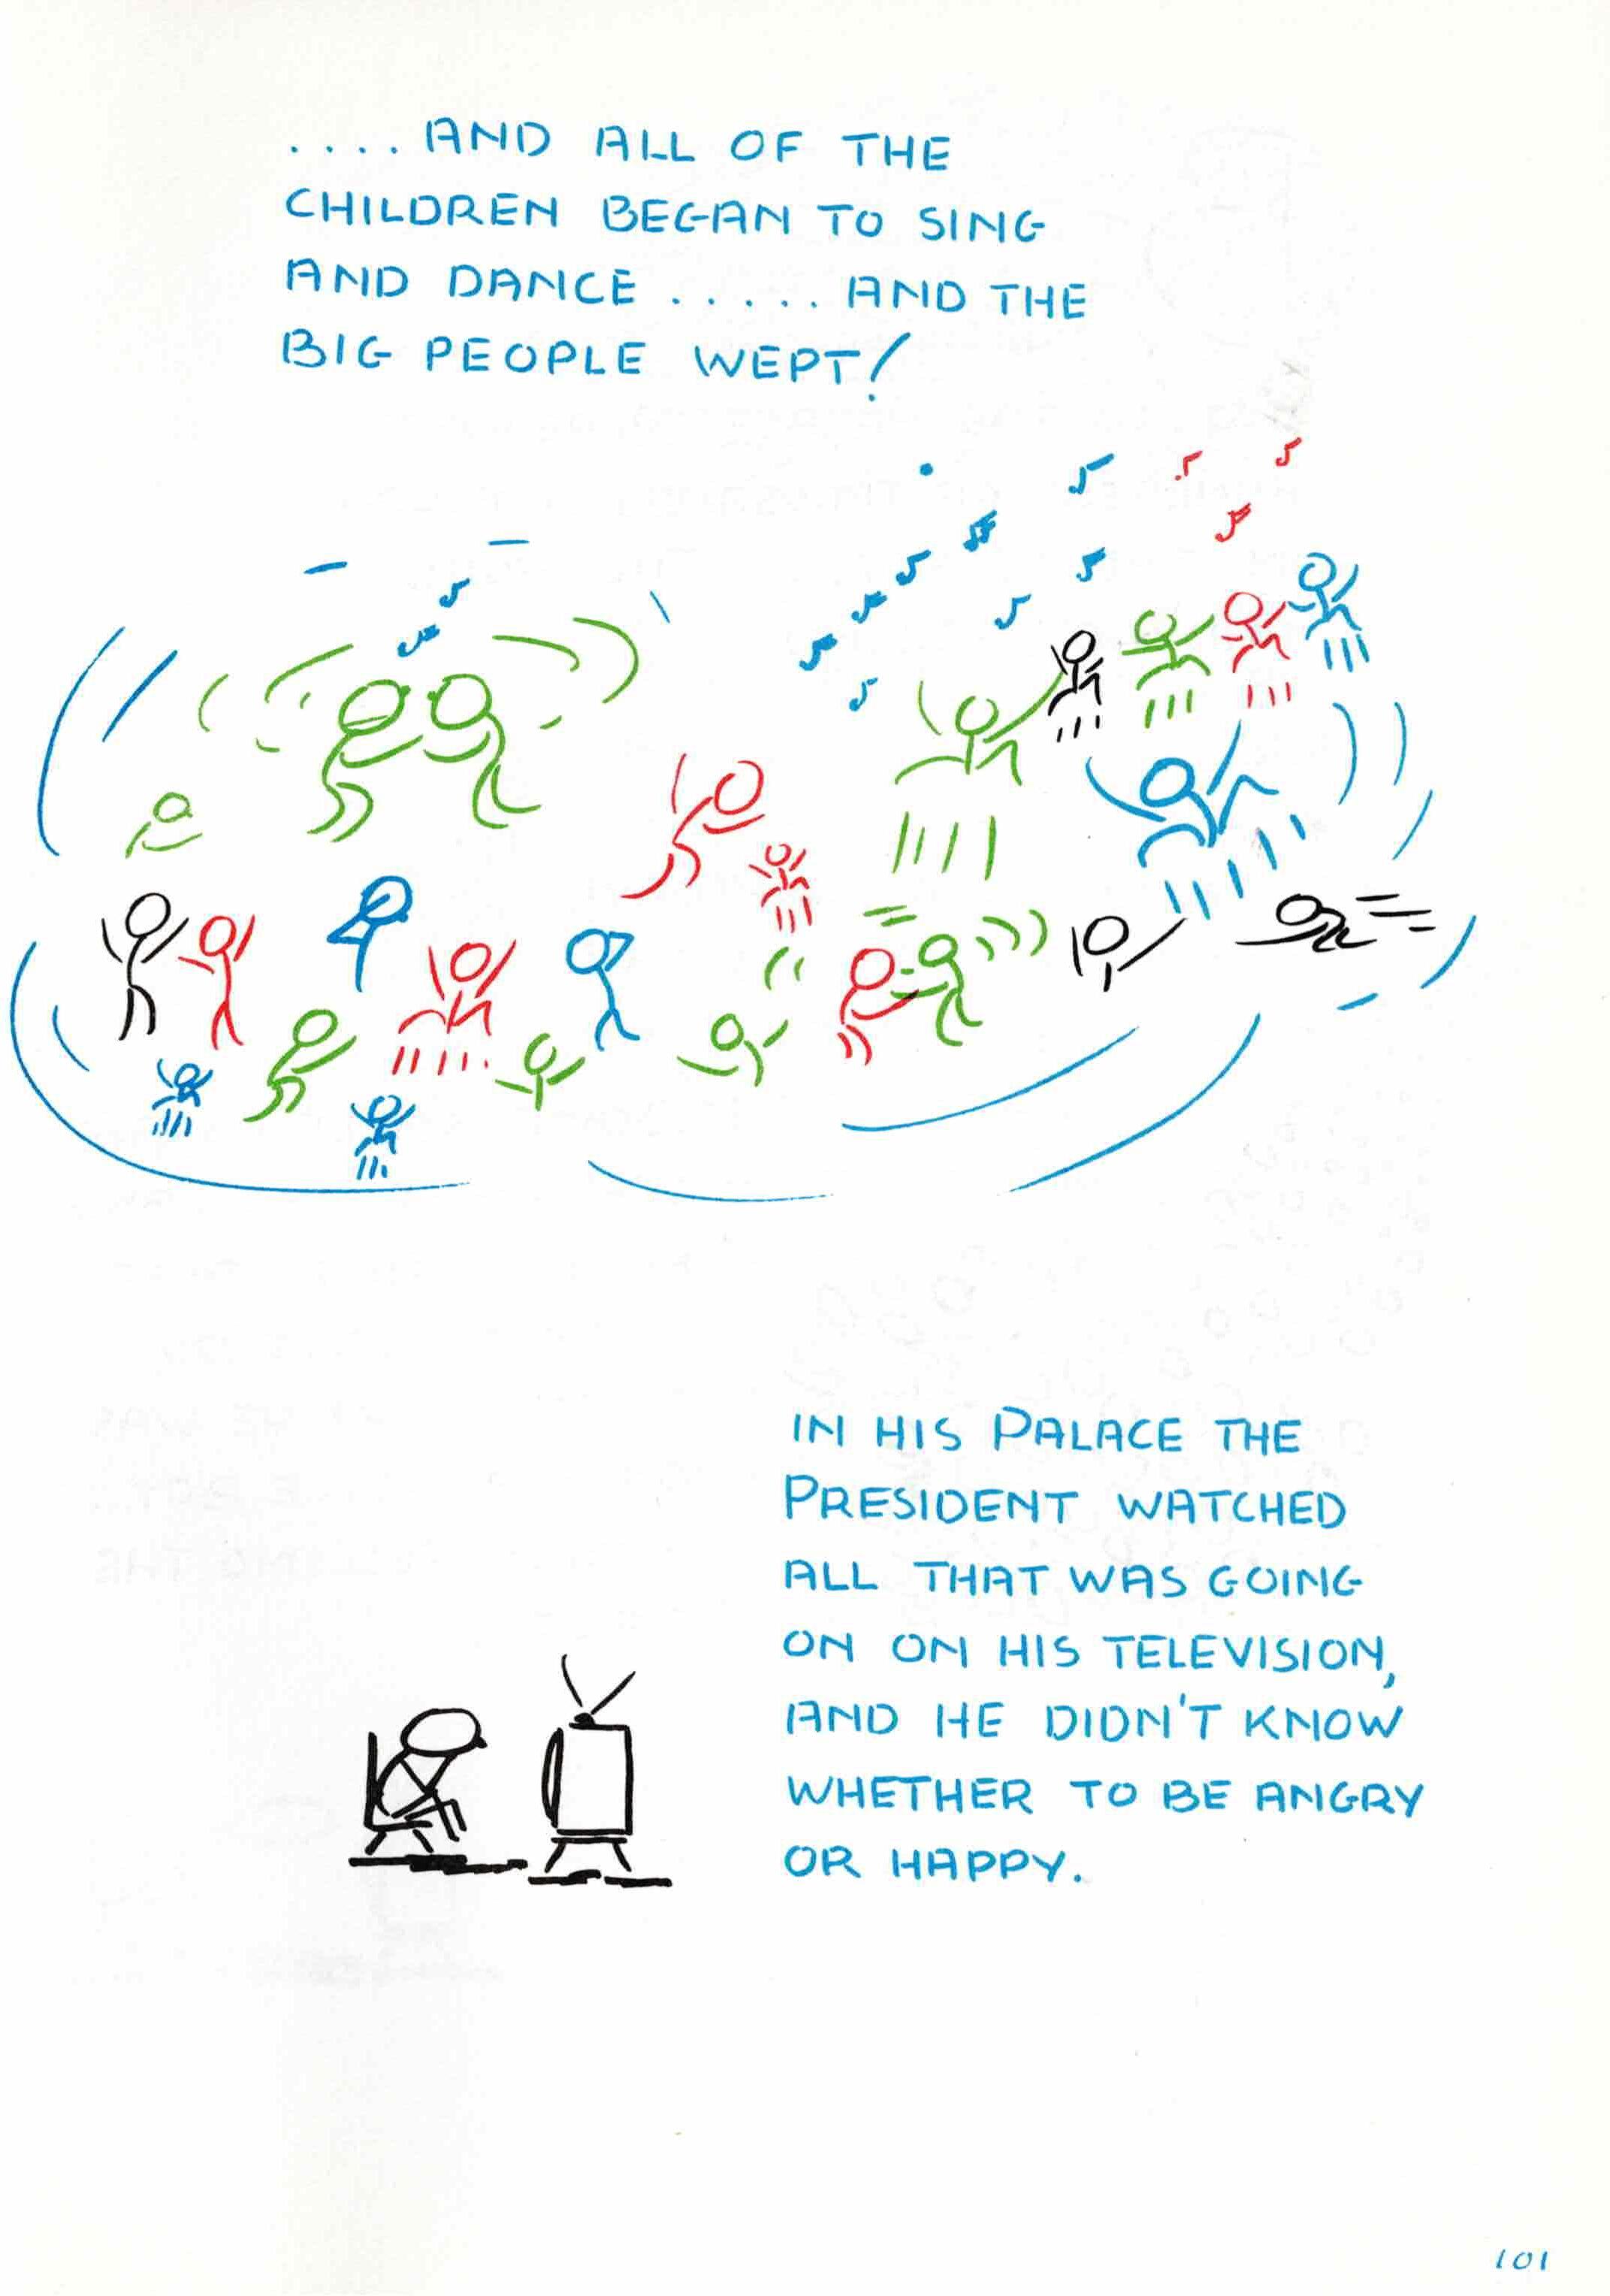 .... AND ALL OF THE
CHILDREN BEGAN TO SING
AND DANCE ..... AND THE
BIG PEOPLE WEPT!
IN HIS PALACE THE
PRESIDENT WATCHED
ALL THAT WAS GOING
ON ON HIS TELEVISION,
AND HE DIDN'T KNOW
WHETHER TO BE ANGRY
OR HAPPY.
101